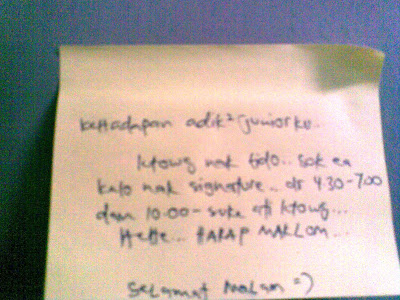 kehadapan adik² juniorku..
ktowg nak tido.. sok ea
kalo nak signature.. dr 4.30-7.00
dan 10.00 - suke ati ktowg...
HeHe... HARAP MAKLOM...
Selamat Malam =)